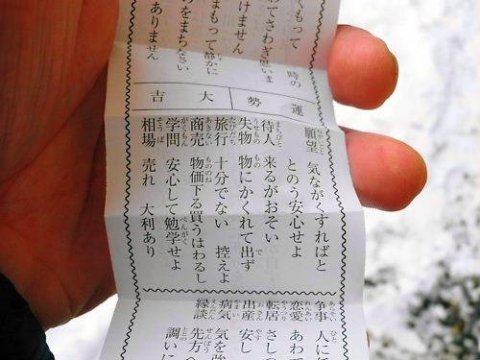 くもって 時の
てさわぎ思いま
けません
まもって静かに
のをまちなさい
ありません
運勢 大吉
願望 気ながくすればと
とのう安心せよ
待人 来るがおそい
失物 物にかくれて出ず
旅行 十分でない 控えよ
商売 物価下る買うはわるし
学問 安心して勉学せよ
相場 売れ 大利あり
争事 人に
恋愛 あわ
転居 さしつ
出産 安し
病気 気を
縁談 先方の
調いに